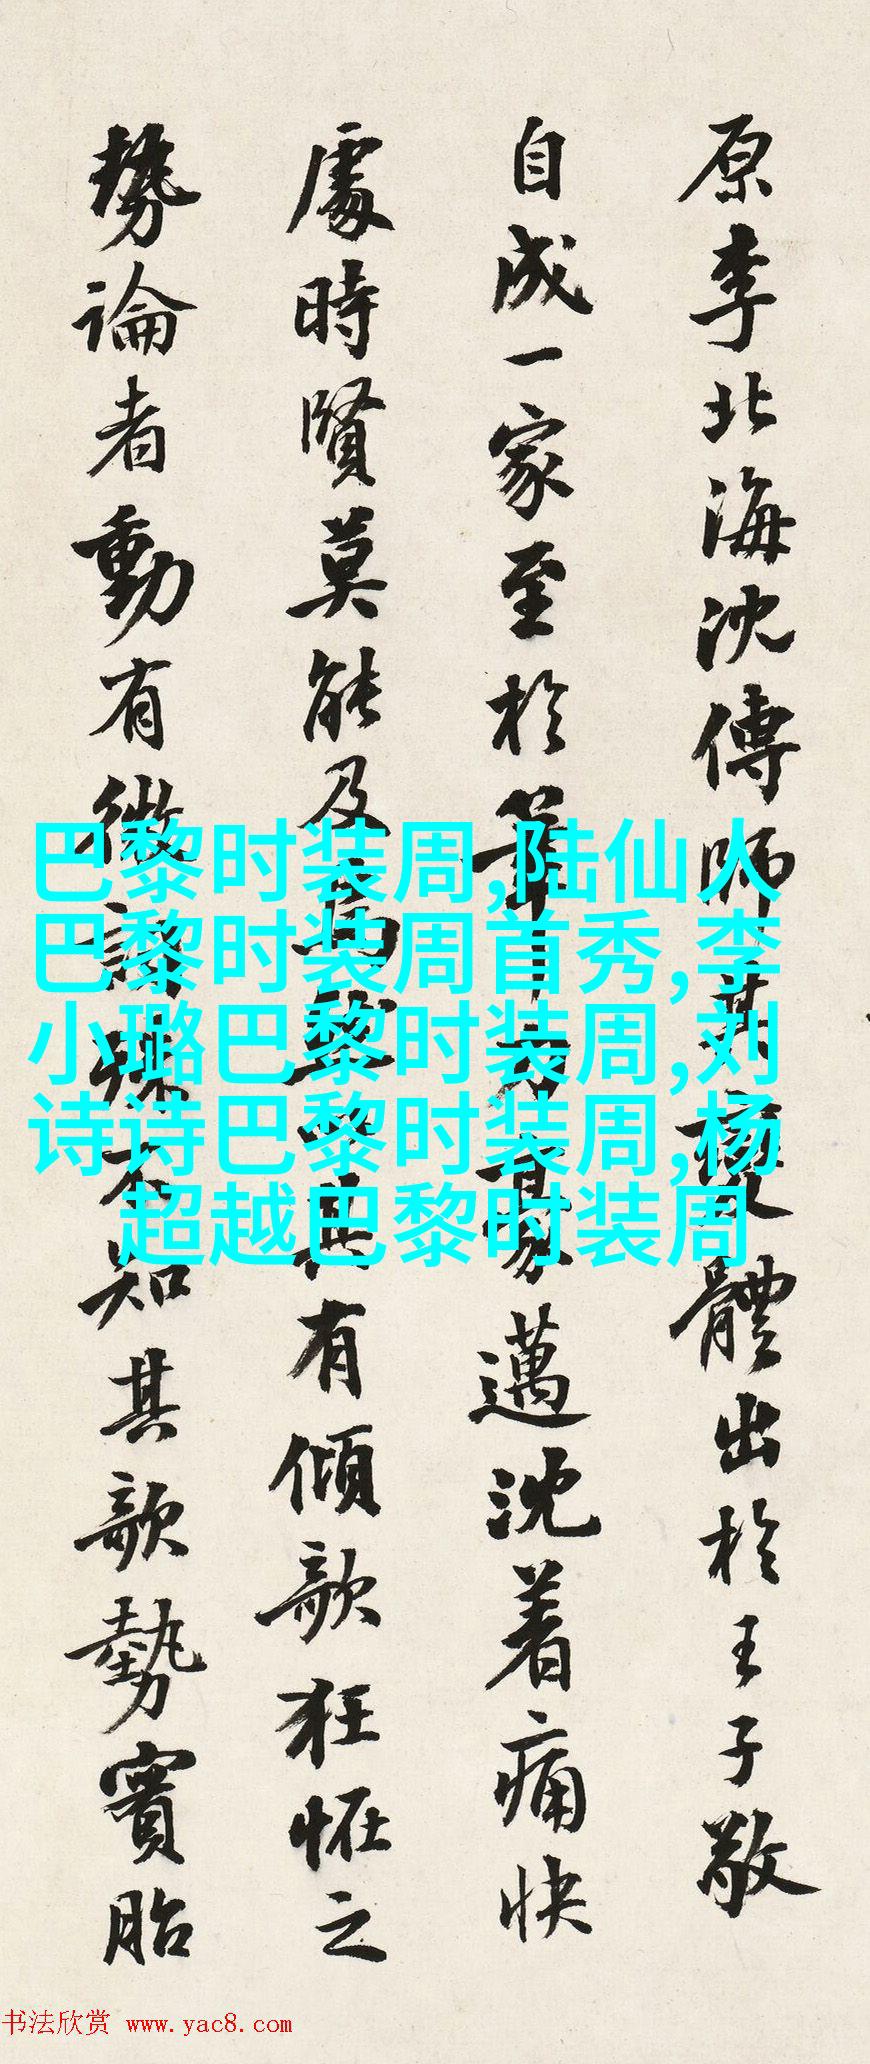 原李北海沈傳師其變體出於王子敬
自成一家至於筆力豪邁沈着痛快
處時賢莫能及為盤其有傾欹狂怪之
勢論者動有微詞殊不知其欹勢實胎
巴黎时装周,陆仙人
巴黎时装周首秀,李
小璐巴黎时装周,刘
诗诗巴黎时装周,杨
超越巴黎时装周
书法欣赏 www.yac8.com